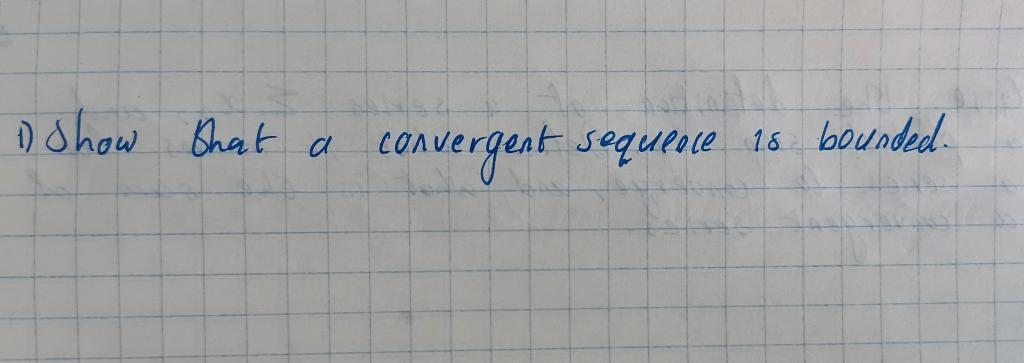 1) Show that a convergent sequence is bounded.